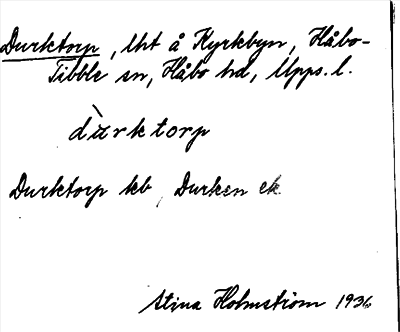 Durktorp, lht å Kyrkbyn, Håbo-
Tibble sn, Håbo hd, Upps. l.
dùrktorp
Durktorp kb, Durken ek.
Stina Holmström 1936